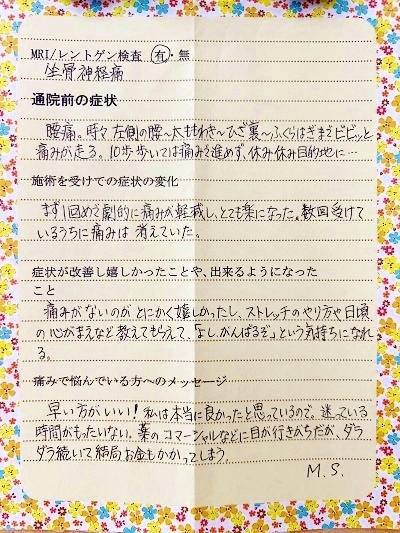 MRI/レントゲン検査 有・無
坐骨神経痛
通院前の症状
腰痛。時々左側の腰～太ももわき～ひざ裏～ふくらはぎまでビビッと
痛みが走る。10歩歩いては痛みで進めず、休み休み目的地に…
施術を受けての症状の変化
まず1回めで劇的に痛みが軽減し、とても楽になった。数回受けて
いるうちに痛みは消えていた。
症状が改善し嬉しかったことや、出来るようになった
こと
痛みがないのがとにかく嬉しかったし、ストレッチのやり方や日頃
の心がまえなど教えてもらえて、「よし、がんばるぞ」という気持ちになれ
る。
痛みで悩んでいる方へのメッセージ
早い方がいい！私は本当に良かったと思っているので、迷っている
時間がもったいない。薬のコマーシャルなどに目が行きがちだが、ダラ
ダラ続いて結局お金もかかってしまう。
M.S.